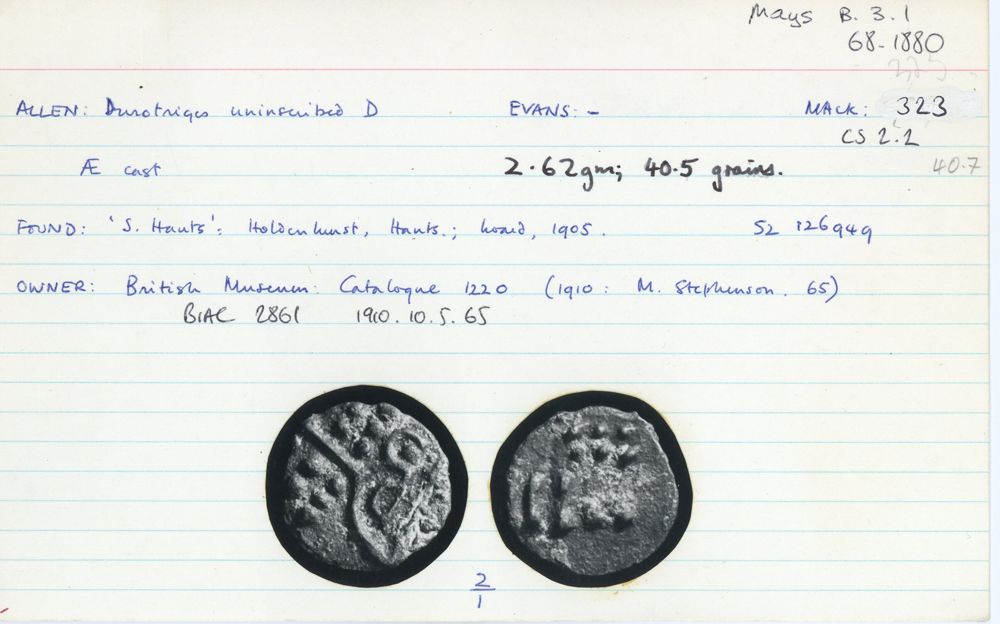 Mays B. 3. 1
68-1880
ALLEN: Durotriges uninscribed D EVANS: - MACK: 323
CS 2.2
Æ cast 2.62gm; 40.5 grains. 40.7
FOUND: 'S. Hants': Holdenhurst, Hants.; hoard, 1905. SZ 126949
OWNER: British Museum: Catalogue 1220 (1910: M. Stephenson. 65)
BIAC 2861 1910.10.5.65
2
1